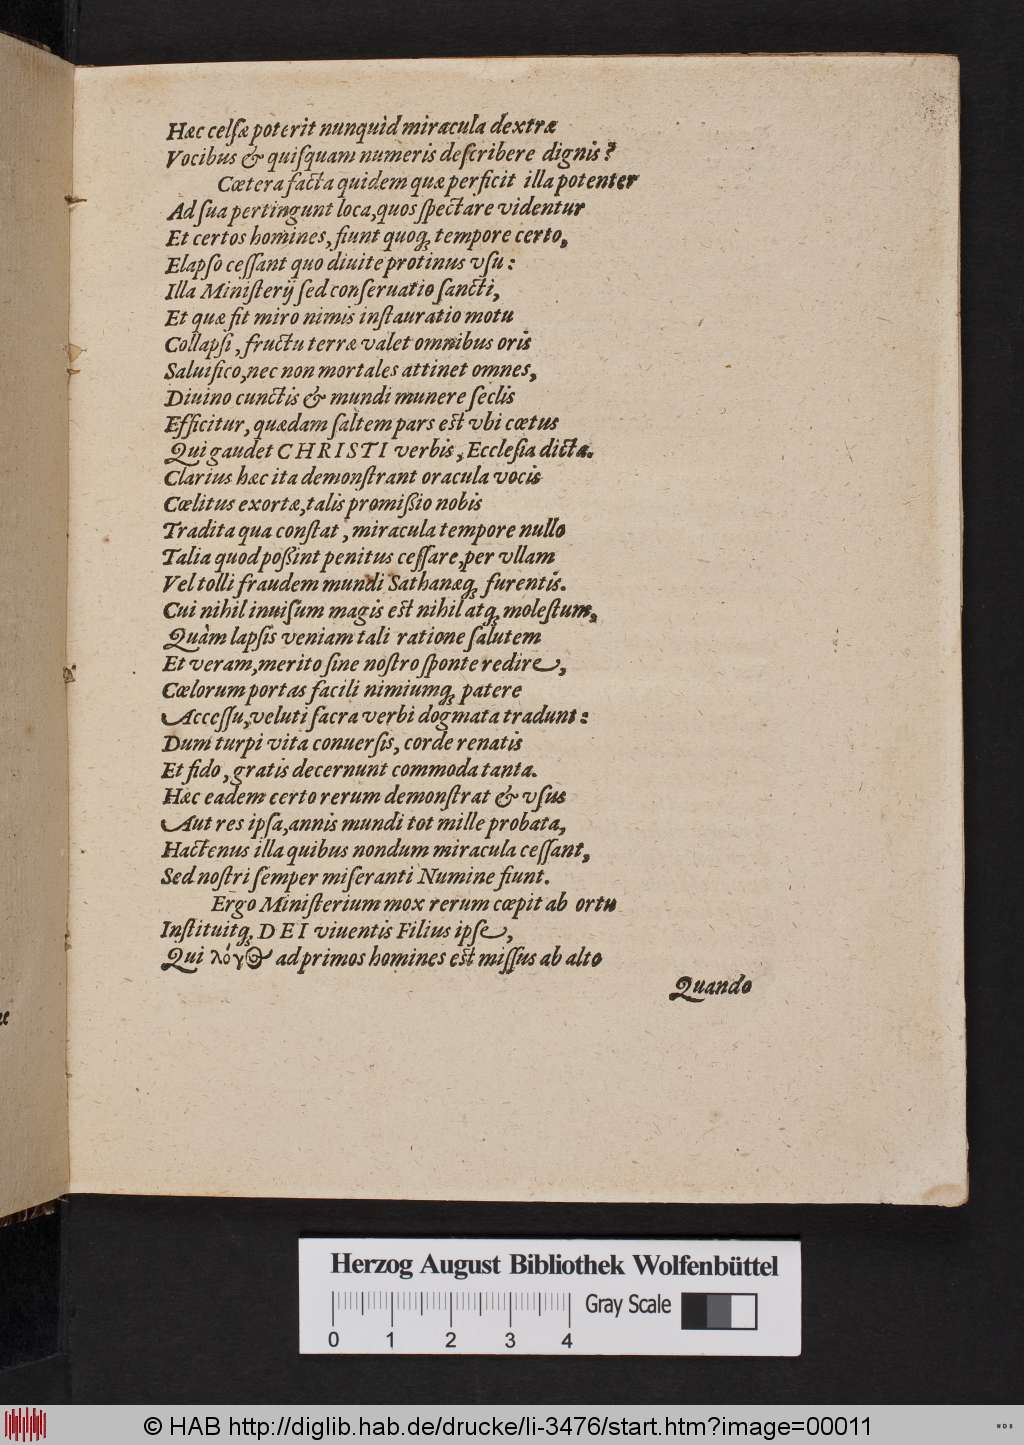 Hæc celsæ poterit nunquid miracula dextræ
Vocibus & quiſquam numeris deſcribere dignis?
Cœtera facta quidem quæ perficit illa potenter
Ad ſua pertingunt loca, quos ſpectare videntur
Et certos homines, fiunt quoq; tempore certo,
Elapſo ceſſant quo diuite protinus vſu:
Illa Miniſterij ſed conſeruatio ſancti,
Et quæ fit miro nimis inſtauratio motu
Collapſi, fructu terræ valet omnibus oris
Saluifico, nec non mortales attinet omnes,
Diuino cunctis & mundi munere ſeclis
Efficitur, quædam ſaltem pars eſt vbi cœtus
Qui gaudet CHRISTI verbis, Eccleſia dicta.
Clarius hæc ita demonſtrant oracula vocis
Cœlitus exortæ, talis promißio nobis
Tradita qua conſtat, miracula tempore nullo
Talia quod poßint penitus ceſſare, per vllam
Vel tolli fraudem mundi Sathanæq; furentis.
Cui nihil inuiſum magis eſt nihil atq; moleſtum,
Quàm lapſis veniam tali ratione ſalutem
Et veram, merito ſine noſtro ſponte redire,
Cœlorum portas facili nimiumq; patere
Acceſſu, veluti ſacra verbi dogmata tradunt:
Dum turpi vita conuerſis, corde renatis
Et fido, gratis decernunt commoda tanta.
Hæc eadem certo rerum demonſtrat & vſus
Aut res ipſa, annis mundi tot mille probata,
Hactenus illa quibus nondum miracula ceſſant,
Sed noſtri ſemper miſeranti Numine fiunt.
Ergo Miniſterium mox rerum cœpit ab ortu
Inſtituitq; DEI viuentis Filius ipſe,
Qui λόγος ad primos homines eſt miſſus ab alto
Quando
Herzog August Bibliothek Wolfenbüttel
Gray Scale
0 1 2 3 4
© HAB http://diglib.hab.de/drucke/li-3476/start.htm?image=00011